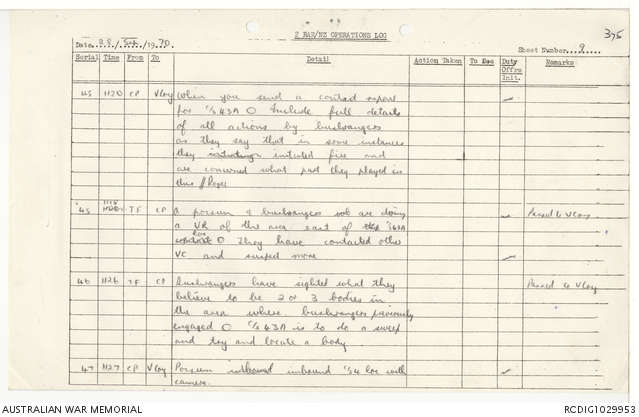 2 RAR/NZ OPERATIONS LOG
375
Date 28/Sep/1970
Sheet Number 9
Serial Time From To Detail Action Taken To Bde Duty Offrs Init. Remarks
45 1120 CP V Coy When you send a contact report
for C/S 43A O Include full details
of all actions by bushrangers
as they say that in some instances
they initiated fire and
are concerned what part they played in
this // Roger
45 1115 TF CP A possum & bushrangers are doing
a VR of the area east of 43A
contact O They have contacted other
VC and suspect more Passed to V Coy
46 1126 TF CP Bushrangers have sighted what they
believe to be 2 or 3 bodies in
the area where bushrangers previously
engaged O C/S 43A is to do a sweep
and try and locate a body Passed to V Coy
47 1127 CP V Coy Possum inbound loc with
camera
AUSTRALIAN WAR MEMORIAL
RCDIG1029953